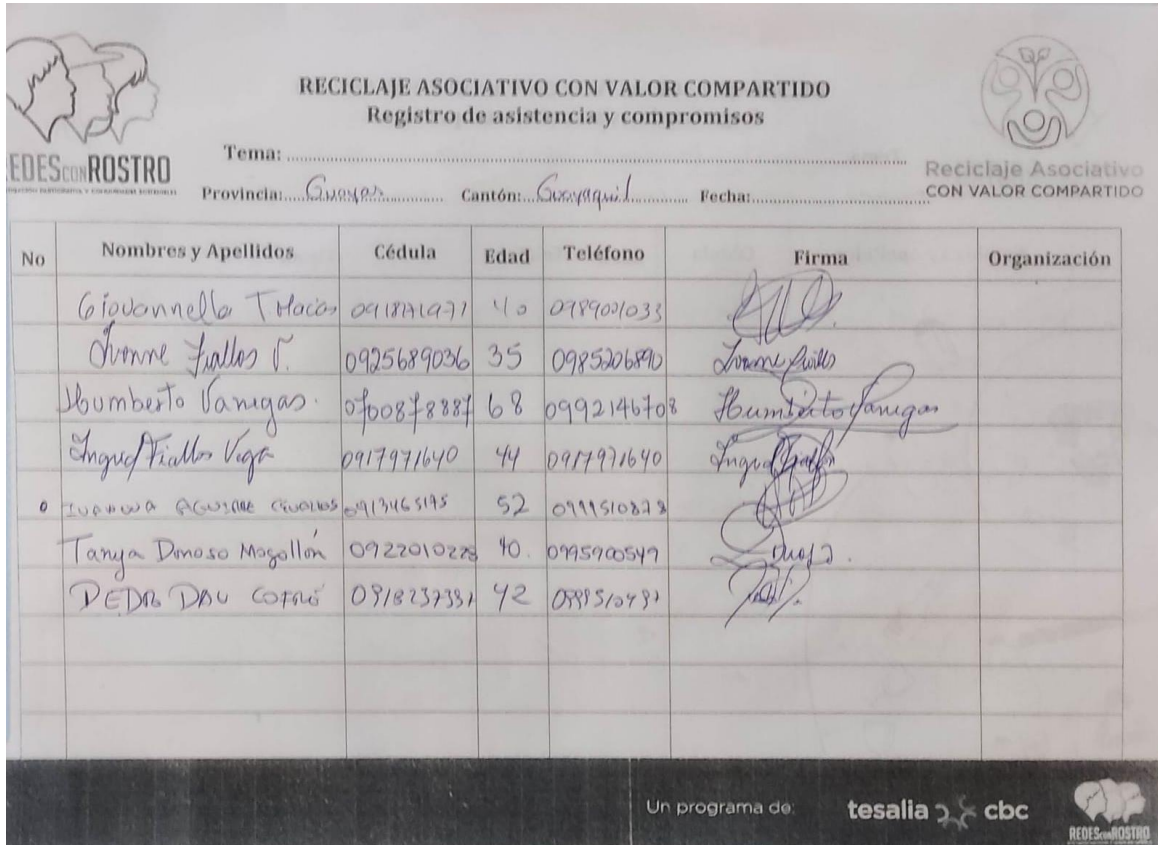 RECICLAJE ASOCIATIVO CON VALOR COMPARTIDO
Registro de asistencia y compromisos
EDES CON ROSTRO
Reciclaje Asociativo
CON VALOR COMPARTIDO
Tema:
Provincia: Guayas Cantón: Guayaquil Fecha:
No Nombres y Apellidos Cédula Edad Teléfono Firma Organización
Giovannella T 40 0989001033
Ivonne Fiallos V. 0925689036 35 0985206890 Ivonne Fiallos
Humberto Vanegas. 0700878887 68 0992146708 Humberto Vanegas
Ingrid Fiallos Vega 0917971640 44 0917971640 Ingrid Fiallos
AGUIRRE 0913465195 52
Tanya Donoso Mogollón 0922010228 40. 0995900549
PEDRO DAU 42
Un programa de: tesalia cbc
REDES CON ROSTRO